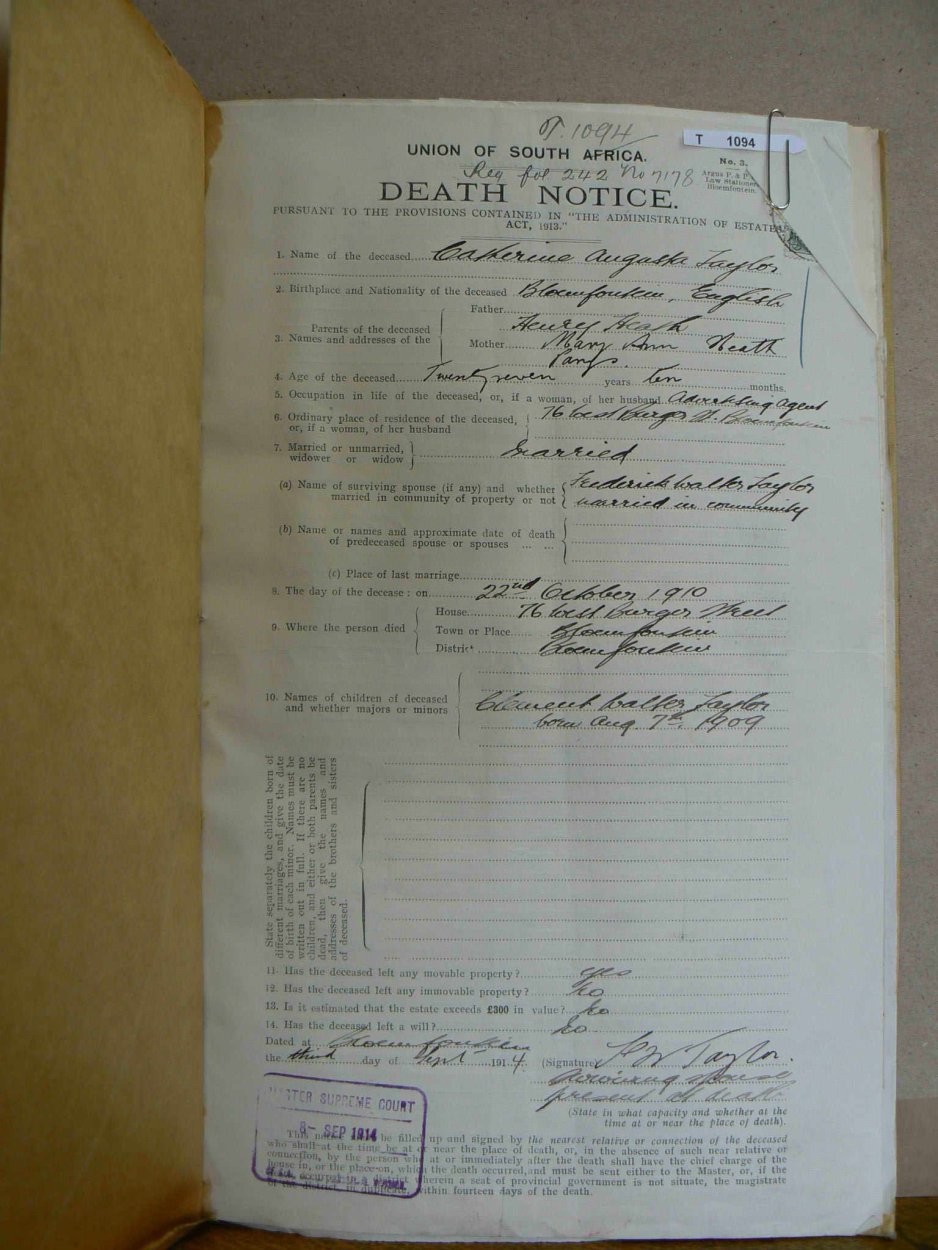 T. 1094
T 1094
UNION OF SOUTH AFRICA.
No. 3.
Argus P. & P.
Law Stationer
Bloemfontein.
Reg fol 242 No 7178
DEATH NOTICE.
PURSUANT TO THE PROVISIONS CONTAINED IN "THE ADMINISTRATION OF ESTATES
ACT, 1913."
1. Name of the deceased Catherine Augusta Taylor
2. Birthplace and Nationality of the deceased Bloemfontein, English
3. Names and addresses of the Parents of the deceased
Father Henry Heath
Mother Mary Ann Heath
4. Age of the deceased Twenty seven years ten months.
5. Occupation in life of the deceased, or, if a woman, of her husband Advertising agent
6. Ordinary place of residence of the deceased, or, if a woman, of her husband 76 West Burger St. Bloemfontein
7. Married or unmarried, widower or widow married
(a) Name of surviving spouse (if any) and whether Frederick Walter Taylor
married in community of property or not married in community
(b) Name or names and approximate date of death
of predeceased spouse or spouses ... ...
(c) Place of last marriage
8. The day of the decease: on 22nd October 1910
9. Where the person died
House 76 West Burger Street
Town or Place Bloemfontein
District Bloemfontein
10. Names of children of deceased Clement Walter Taylor
and whether majors or minors born Aug. 7th 1909
State separately the children born of
different marriages, and give the date
of birth of each minor. Names must be
written out in full. If there are no
children, and either or both parents be
dead, then give the names and
addresses of the brothers and sisters
of deceased.
11. Has the deceased left any movable property? yes
12. Has the deceased left any immovable property? no
13. Is it estimated that the estate exceeds £300 in value? no
14. Has the deceased left a will? no
Dated at Bloemfontein
the third day of Sept 1914
(Signature) F W Taylor.
surviving spouse
present at death.
(State in what capacity and whether at the
time at or near the place of death).
MASTER SUPREME COURT
8- SEP 1914
This notice be filled up and signed by the nearest relative or connection of the deceased
who shall at the time be at or near the place of death, or, in the absence of such near relative or
connection, by the person who at or immediately after the death shall have the chief charge of the
house in, or the place on, which the death occurred, and must be sent either to the Master, or, if the
wherein a seat of provincial government is not situate, the magistrate
of the district, in duplicate, within fourteen days of the death.